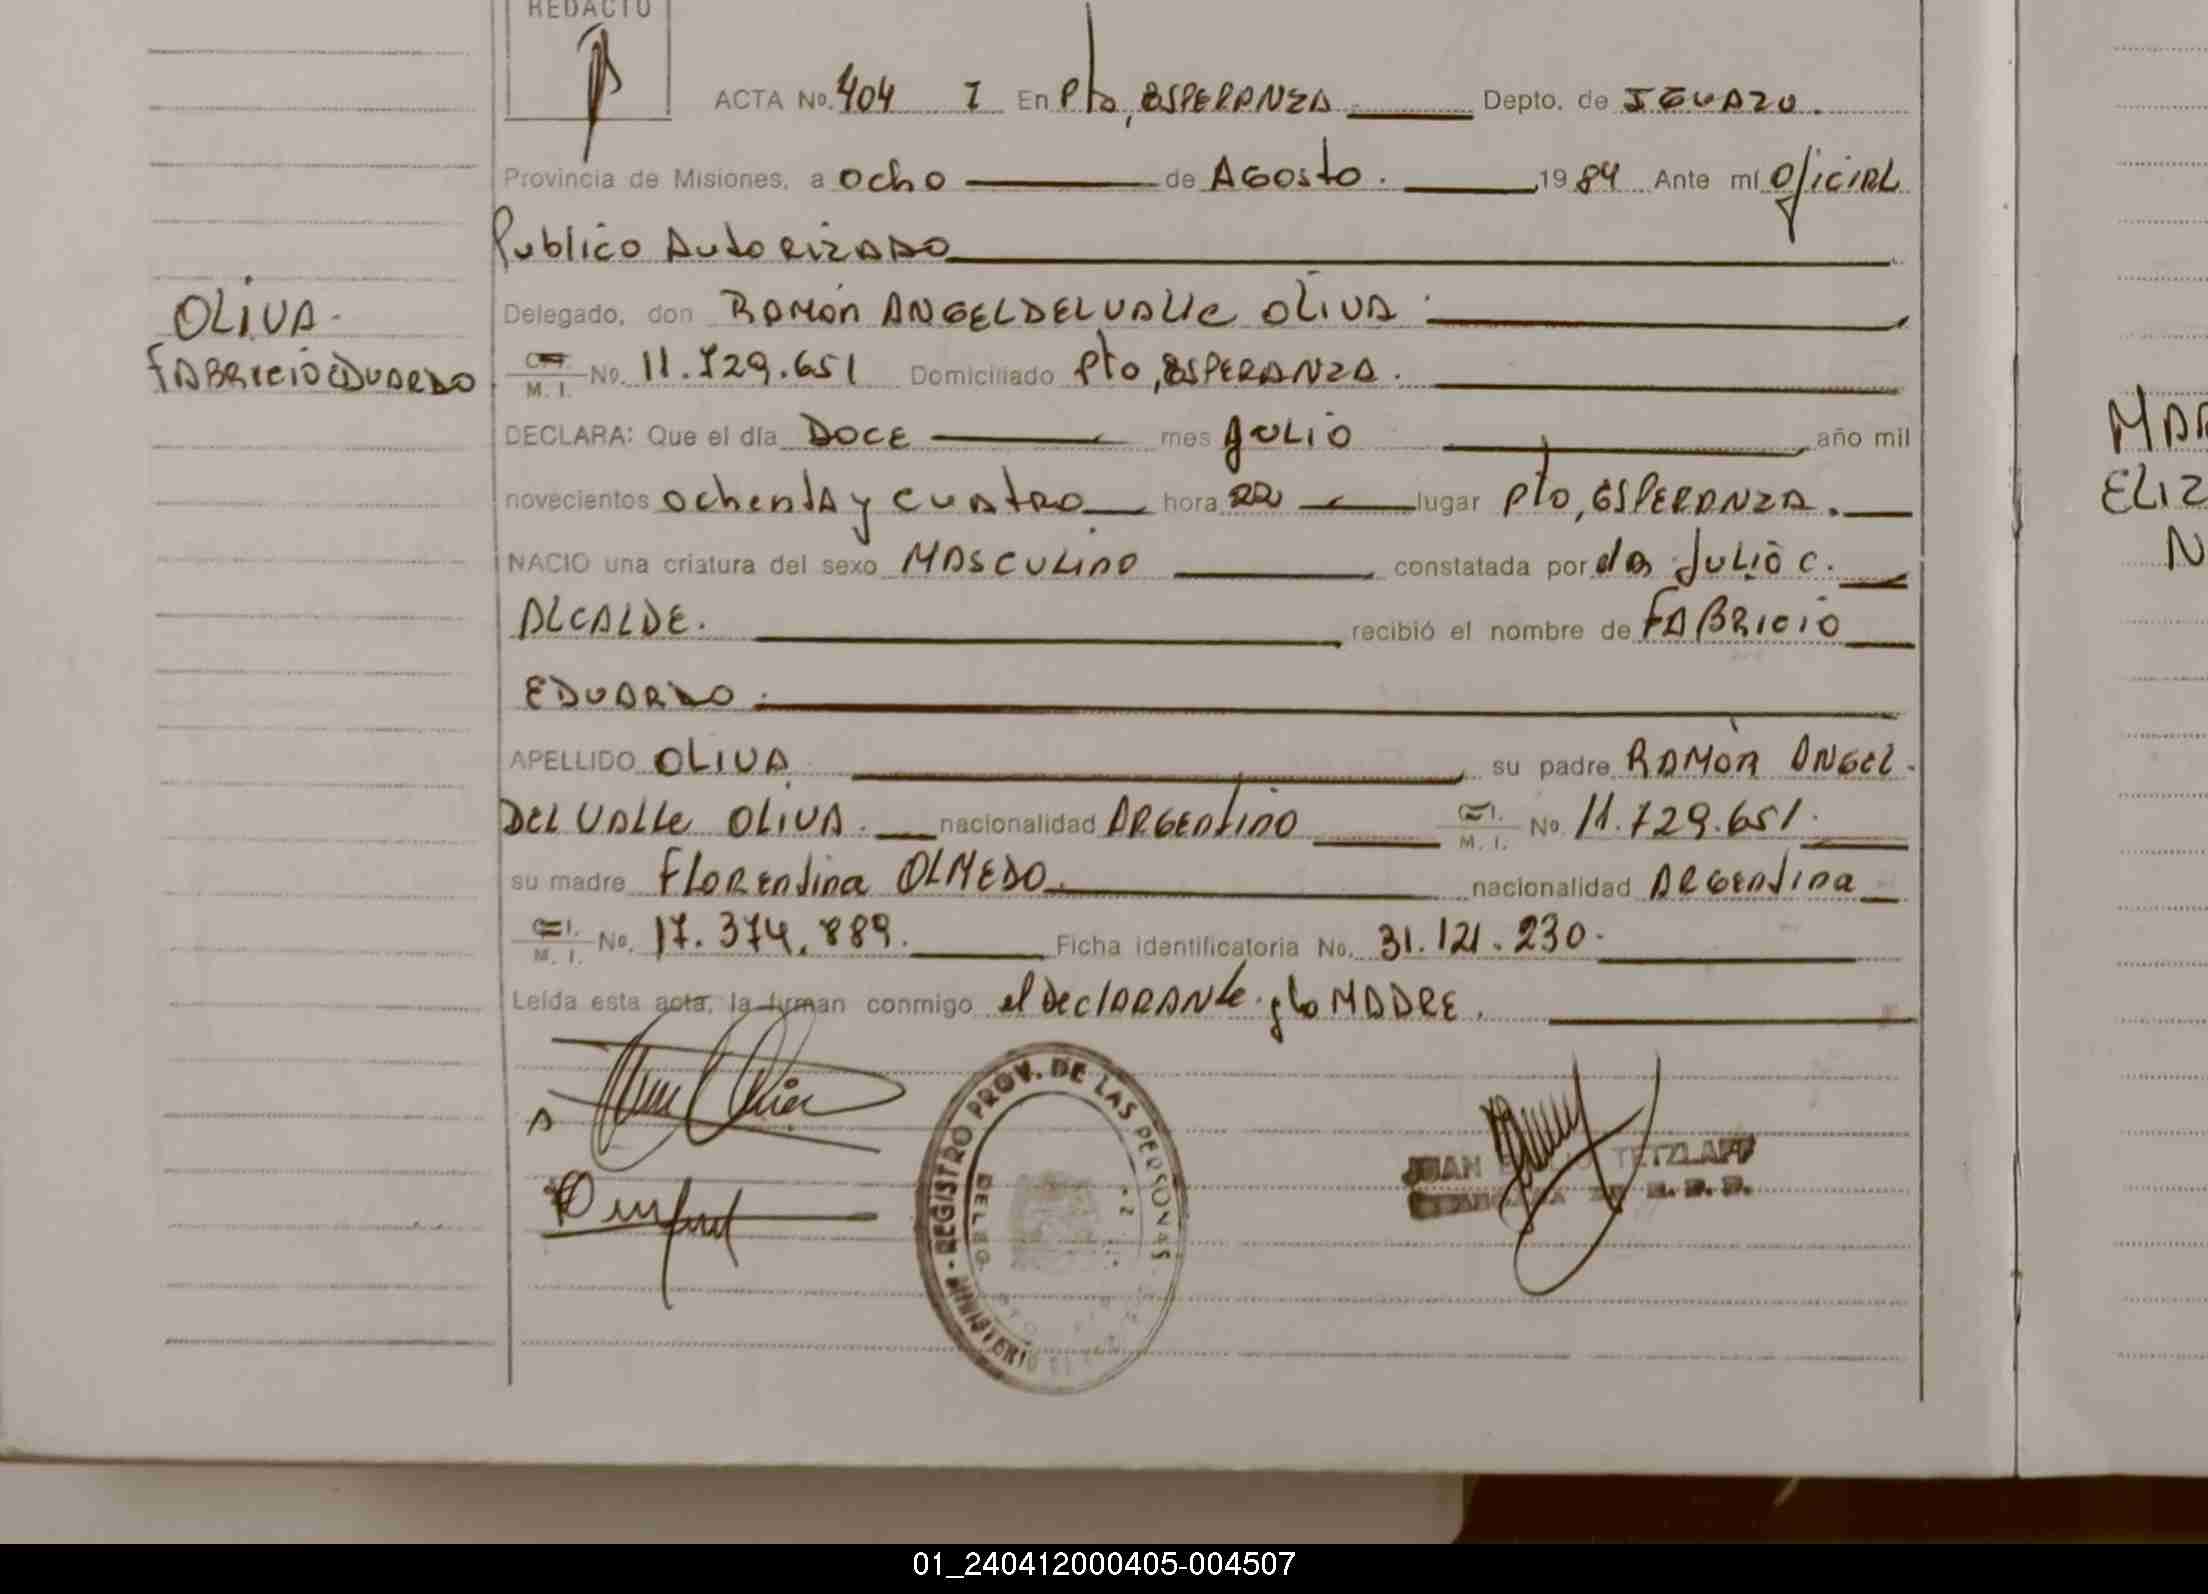 REDACTO
ACTA No. 404 I En Pto, ESPERANZA Depto. de IGUAZU.
Provincia de Misiones, a ocho de AGosto. 1984 Ante mí Oficial
Publico Autorizado
OLIVA
FABRICIO EDUARDO
Delegado, don RAMón ANGEL DEL VAlle OLIVA
C.I. M. I. No. 11.729.651 Domiciliado Pto, ESPERANZA.
DECLARA: Que el día DOCE mes JULIO año mil
novecientos ochenta y cuatro hora 22 lugar Pto, ESPERANZA.
NACIO una criatura del sexo MASCULINO constatada por JULIO C.
ALCALDE. recibió el nombre de FABRICIO
EDUARDO
APELLIDO OLIVA su padre RAMón ANGEL
DEL VALLE OLIVA. nacionalidad ARGENtINO C.I. M. I. No. 11.729.651.
su madre FLORENtina OLMEDO nacionalidad ARGENtina
C.I. M. I. No. 17.374.889. Ficha identificatoria No. 31.121.230.
Leída esta acta, la firman conmigo el DeclARANte y la MADRE.
MINISTERIO - REGISTRO PROV. DE LAS PERSONAS
JUAN TETZLAFF
MAR
ELIZ
N
01_240412000405-004507